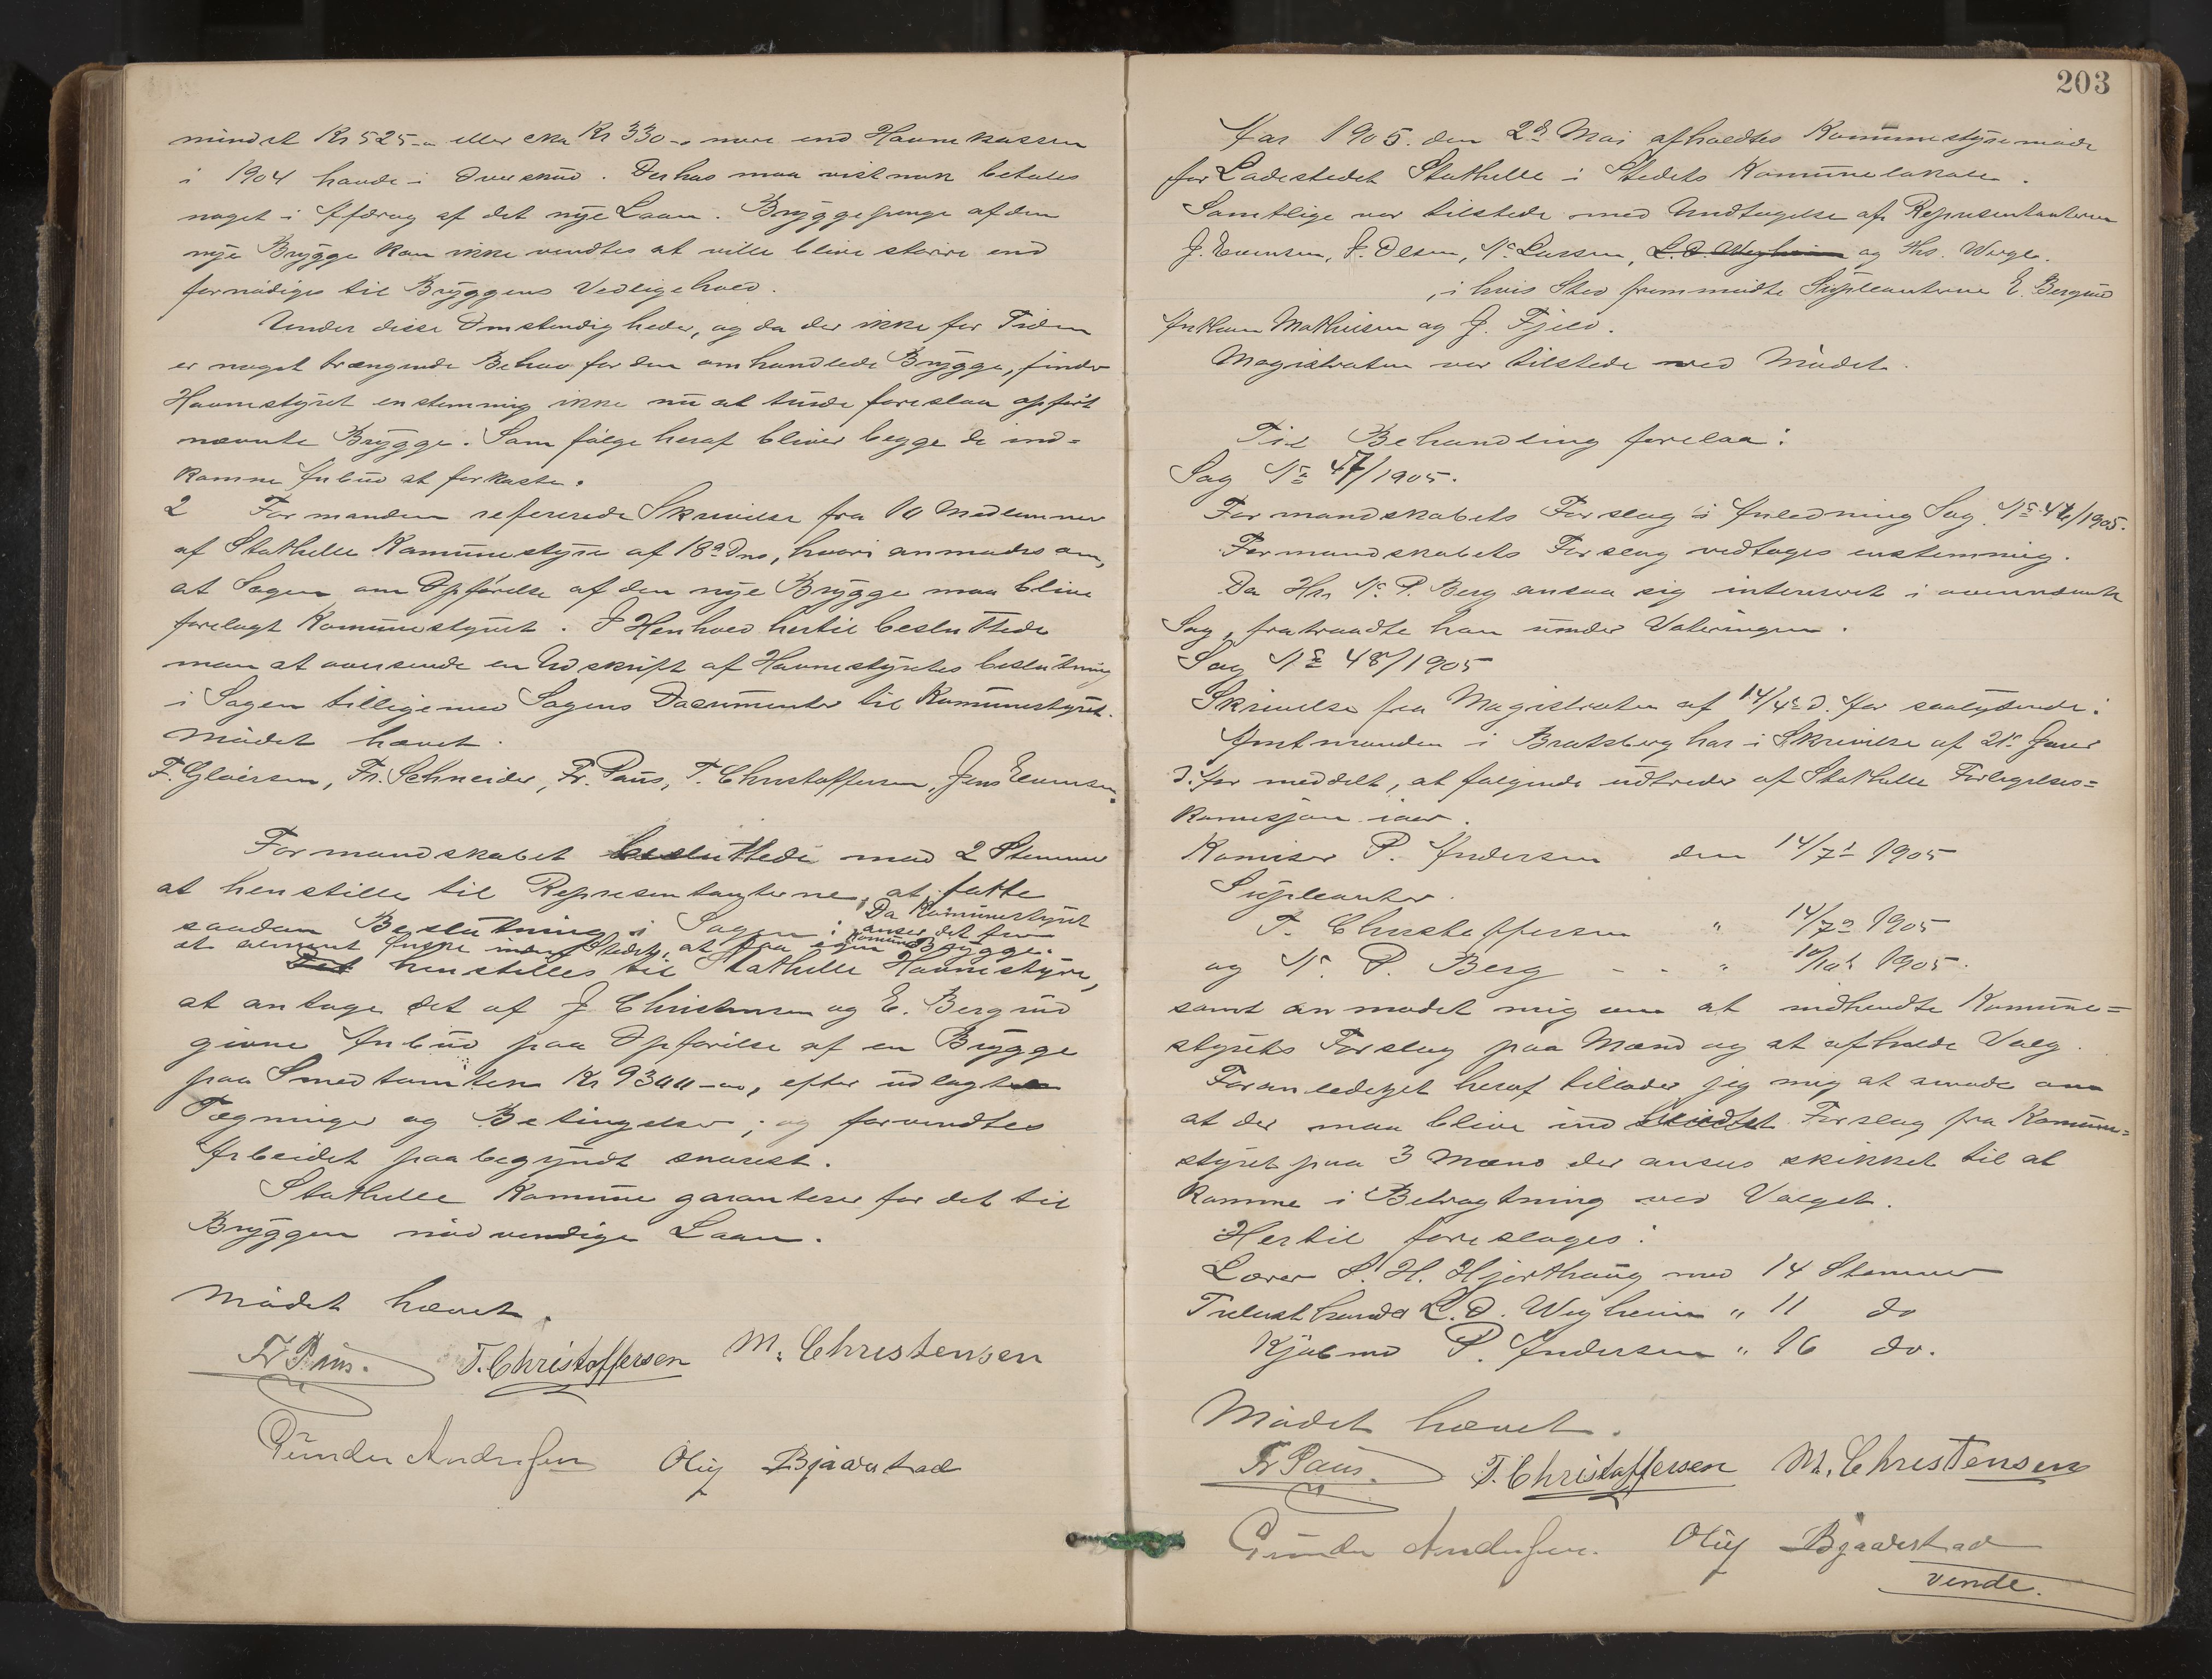 mindst Kr 525-" eller cka Kr 330-" mere end Havnekassen
i 1904 havde i Overskud. Derhos maa vistnok betales
noget i Afdrag af det nye Laan. Bryggepenge af den
nye Brygge kan ikke ventes at ville blive større end
fornødiges til Bryggens Vedligehold.
Under disse Omstendigheder, og da der ikke for Tiden
er noget trængende Behov for den omhandlede Brygge, finder
Havnestyret enstemmig ikke nu at turde foreslaa opført
nævnte Brygge. Som følge heraf bliver begge de ind-
komne Anbud at forkaste.
2 Formanden refererede Skrivelse fra 10 Medlemmer
af Stathelle Komunestyre af 18de Dns, hvori anmodes om,
at Sagen om Opførelse af den nye Brygge maa blive
forelagt Komunestyret. I Henhold hertil besluttede
man at oversende en Udskrift af Havnestyrets beslutning
i Sagen tilligemed Sagens Documenter til Komunestyret.
Mødet hævet.
F. Gløersen, Fr. Schneider, Fr. Paus, T. Christoffersen, Jens Evensen.
Formandskabet besluttede med 2 Stemmer
at henstille til Representanterne, at fatte
saadan Beslutning i Sagen: Da Komunestyret
anser det for
at være inden Stedet, at faa egen Komunebrygge.
Det henstilles til Stathelle Havnestyre,
at antage det af J Christensen og E. Bergrud
givne Anbud paa Opførelse af en Brygge
paa Smedtomten Kr 9300-00, efter udlagte
Tegninger og Betingelser; og forventes
Arbeidet paabegyndt snarest.
Stathelle Komune garanterer for det til
Bryggen nødvendige Laan.
Mødet hævet.
Fr Paus. T. Christoffersen M. Christensen
Gunder Andersen Oluf Bjaavstad
203
Aar 1905. den 2de Mai afholdtes Komunestyremøde
for Ladestedet Stathelle i Stedets Komunelokale.
Samtlige var tilstede med Undtagelse af Representanterne
J. Evensen, J. Olsen, N. Larsen, L. D. Wegheim og Chs. Werge.
, i hvis Sted fremmødte Supleanterne E. Bergrud
Anthon Mathisen og J. Fjeld.
Magistraten var tilstede ved Mødet.
Til Behandling forelaa:
Sag No 47/1905.
Formandskabets Forslag i Anledning Sag No 46/1905.
Formandskabets Forslag vedtoges enstemmig.
Da Hr. N. P. Berg ansaa sig interesert i ovennævnte
Sag, fratraadte han under Voteringen.
Sag No 48/1905
Skrivelse fra Magistraten af 14/4 d. Aar saalydende:
Amtmanden i Bratsberg har i Skrivelse af 21de Januar
d. Aar meddelt, at følgende udtreder af Stathelle Forligelses-
komisjon iaar.
Komisær P. Andersen den 14/7de 1905
Supleanter.
T. Christoffersen " 14/7de 1905
og N. P. Berg - - " 10/10de 1905.
samt anmodet mig om at indhendte Komune-
styrets Forslag paa Mænd og at afholde Valg.
Foranlediget heraf tillader jeg mig at anmode om
at der maa blive indsendt Forslag fra Komune-
styret paa 3 Mænd der ansees skikket til at
komme i Betragtning ved Valget.
Hertil foreslages:
Lærer S. H. Hjorthaug med 14 Stemmer
Trelasthandler L. D. Wegheim " 11 do
Kjøbmd P. Andersen " 16 do.
Mødet hævet.
Fr Paus. T. Christoffersen M. Christensen
Gunder Andersen. Oluf Bjaavstad
vende.